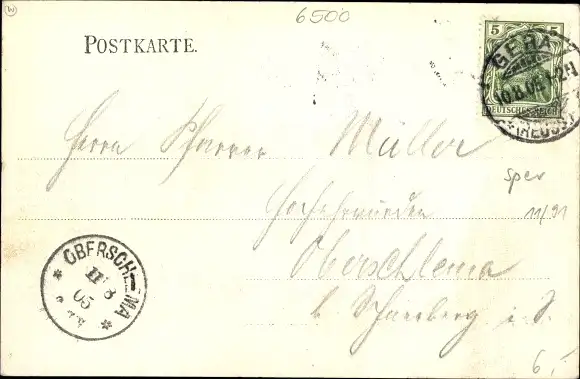 6500
POSTKARTE.
5 5
DEUTSCHES REICH
GERA
10.8.05
(REUSS)
Herrn Pfarrer Müller
Hochehrwürden
Oberschlema
b. Schneeberg i. S.
Sper
11/91
OBERSCHLEMA
11 8
05
6,-